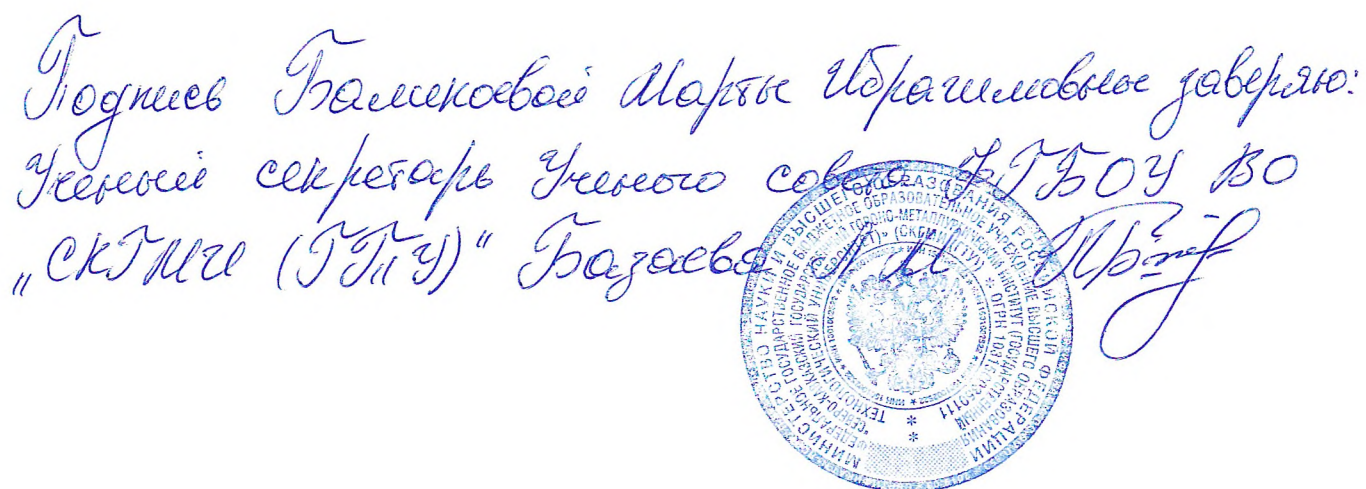 Подпись Баликоевой Марты Ибрагимовны заверяю:
Ученый секретарь Ученого совета ФГБОУ ВО
„СКГМИ (ГТУ)" Базаева Л М
МИНИСТЕРСТВО НАУКИ И ВЫСШЕГО ОБРАЗОВАНИЯ РОССИЙСКОЙ ФЕДЕРАЦИИ
ФЕДЕРАЛЬНОЕ ГОСУДАРСТВЕННОЕ БЮДЖЕТНОЕ ОБРАЗОВАТЕЛЬНОЕ УЧРЕЖДЕНИЕ ВЫСШЕГО ОБРАЗОВАНИЯ
"СЕВЕРО-КАВКАЗСКИЙ ГОРНО-МЕТАЛЛУРГИЧЕСКИЙ ИНСТИТУТ (ГОСУДАРСТВЕННЫЙ
ТЕХНОЛОГИЧЕСКИЙ УНИВЕРСИТЕТ)» (СКГМИ (ГТУ) * ОГРН